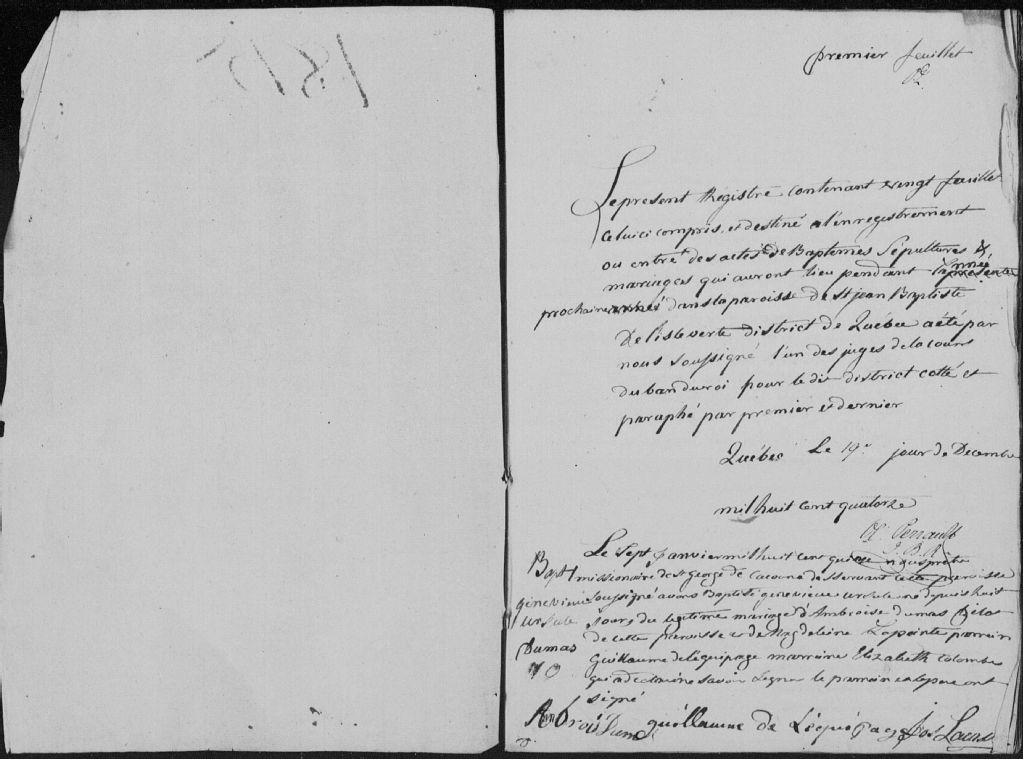 1815
premier feuillet
Le present Registre contenant vingt feuillet
Celuici compris et destiné a l'enregistrement
ou entré des actes de Baptêmes Sépultures &
mariages qui auront lieu pendant L'année
prochaine dans la paroisse de St jean Baptiste
De l'isle verte district de Québec a été par
nous soussigné l'un des juges de la cour
du banc du roi pour le dit district cotté et
paraphé par premier et dernier
Québec Le 19e jour de Decembre
mil huit cent quatorze
Ol. Perrault
J. B. R.
Le Sept Janvier mil huit cent quinze nous prêtre
Bapt missionaire de St George de Cacouna desservant cette paroisse
genevieve soussigné avons Baptisé genevieve ursule née depuis huit
ursule jours du legitime mariage d'Ambroise dumas
Dumas de cette paroisse et de Magdeleine Lapointe parrain
Guillaume de l'equipage marraine Elizabeth Colombe
qui a declaré ne savoir signer le parrain et le pere ont
signé
Ambroi Dum guillaume de Léquipage Jos